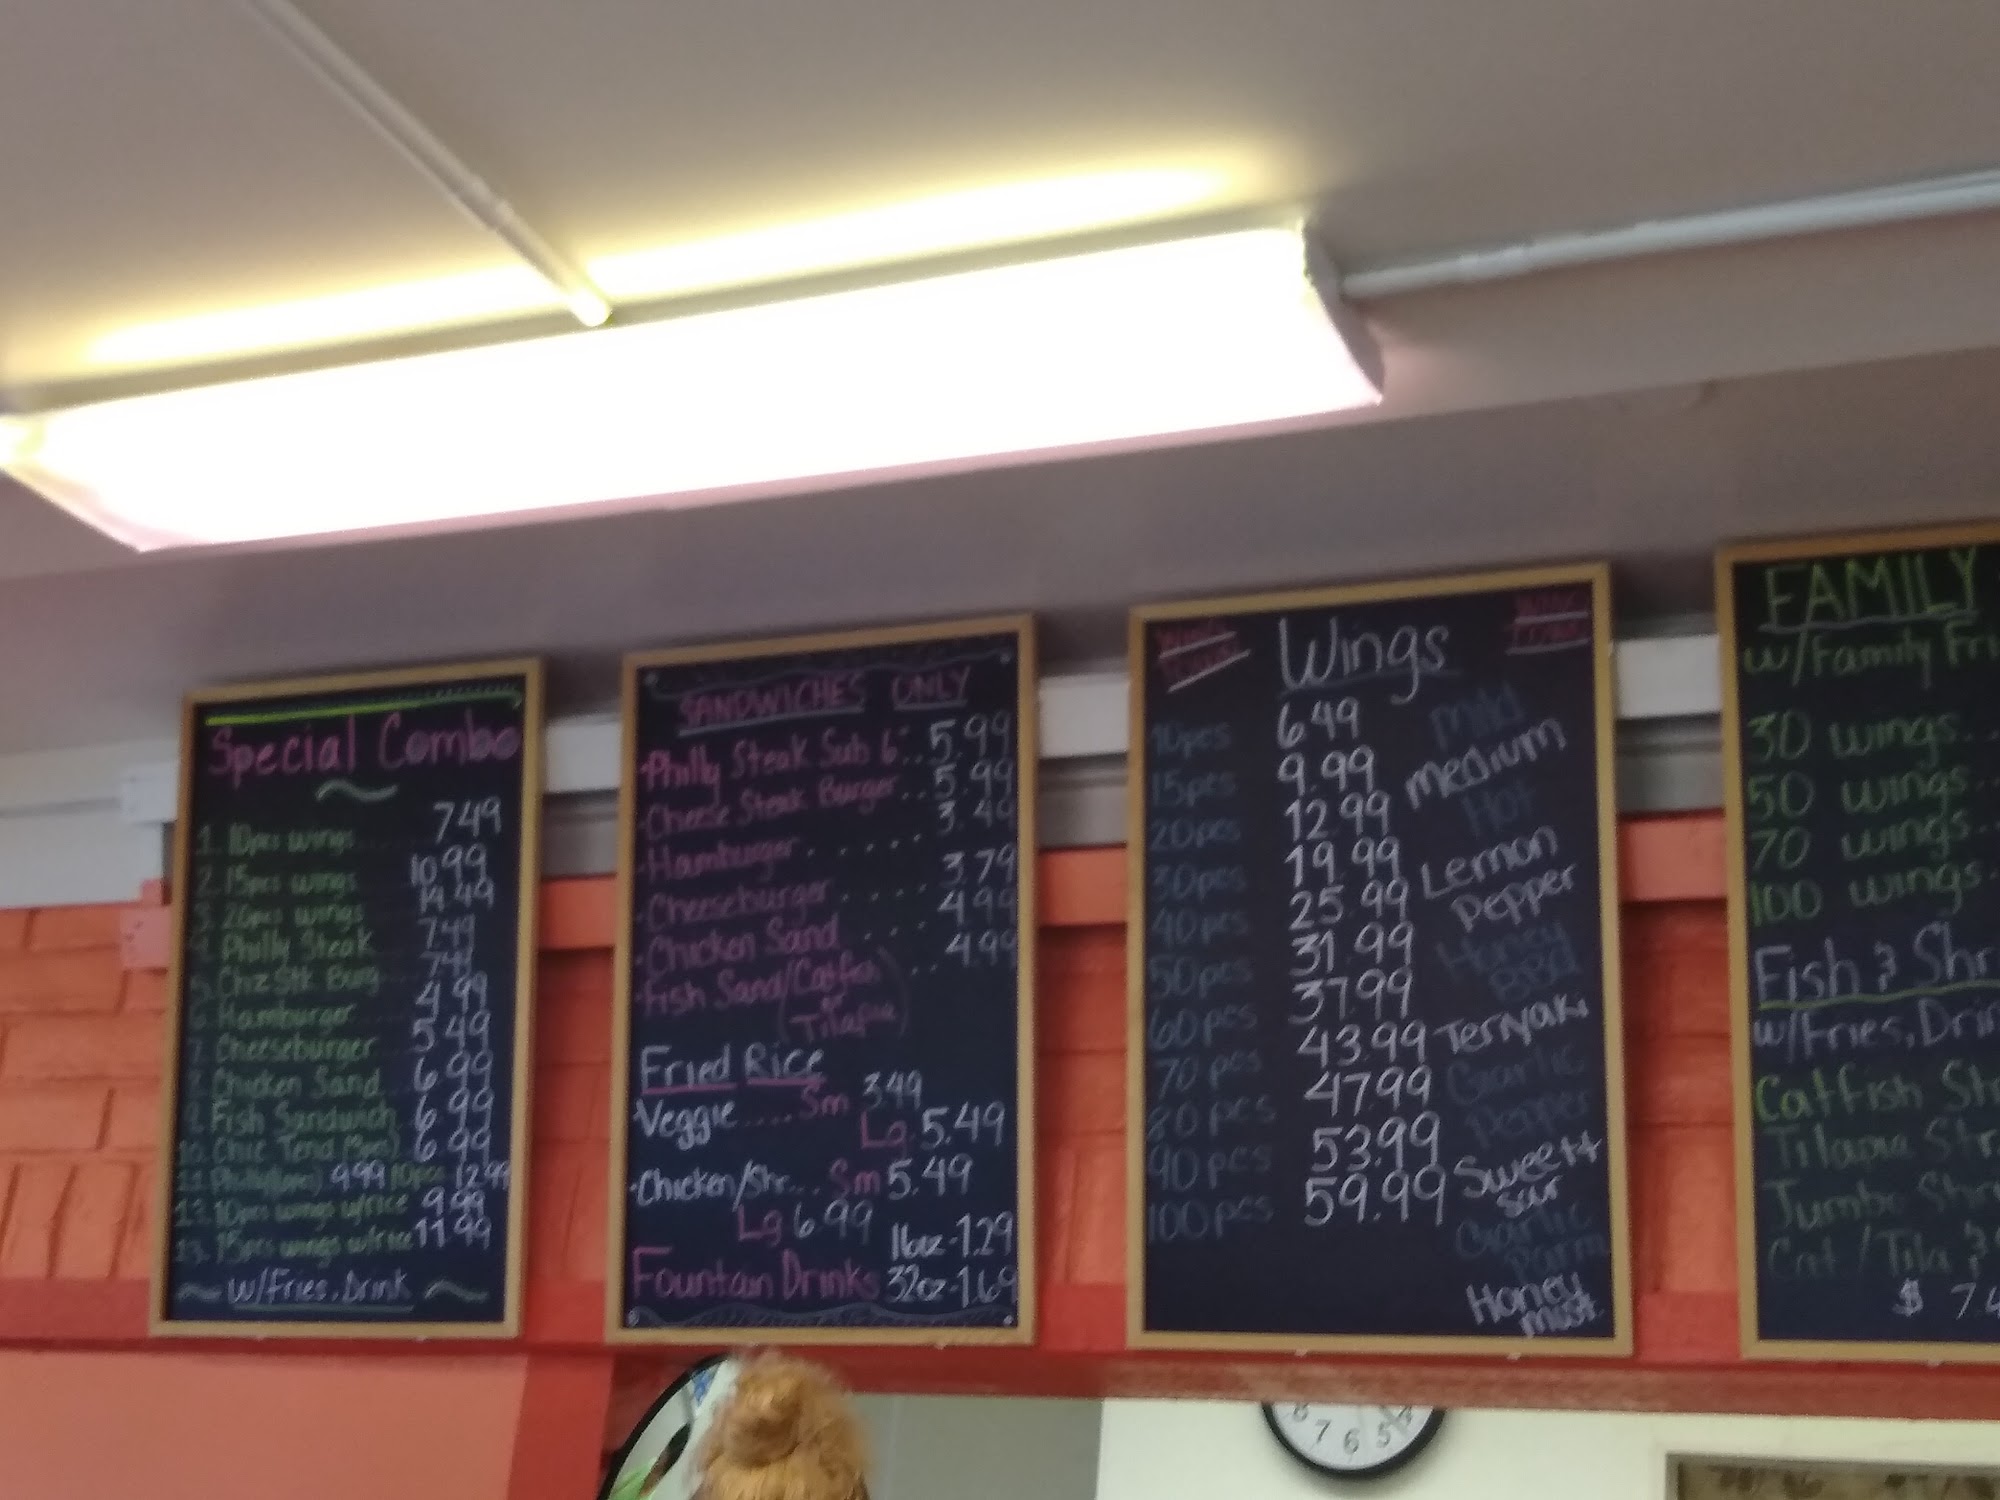 Special Combo
1. 10pcs wings 7.49
2. 15pcs wings 10.99
3. 20pcs wings 14.49
4. Philly Steak 7.49
5. Chz Stk Burg 7.49
6. Hamburger 4.99
7. Cheeseburger 5.49
8. Chicken Sand 6.99
9. Fish Sandwich 6.99
10. Chic Tend 6.99
9.99 12.99
12. 10pcs wings w/rice 9.99
13. 15pcs wings w/rice 11.99
w/Fries, Drink
SANDWICHES ONLY
·Philly Steak Sub 6".. 5.99
·Cheese Steak Burger.. 5.99
·Hamburger..... 3.49
·Cheeseburger.... 3.79
·Chicken Sand.... 4.99
·Fish Sand/(Catfish or Tilapia) .. 4.99
Fried Rice
·Veggie.... Sm 3.49
Lg. 5.49
·Chicken/Shr... Sm 5.49
Lg 6.99
Fountain Drinks 16oz-1.29
32oz-1.69
Wings
10pcs 6.49
15pcs 9.99
20pcs 12.99
30pcs 19.99
40pcs 25.99
50pcs 31.99
60pcs 37.99
70pcs 43.99
80pcs 47.99
90pcs 53.99
100pcs 59.99
Mild
Medium
Hot
Lemon
Pepper
Honey
BBQ
Teriyaki
Garlic
Pepper
Sweet &
Sour
Garlic
Parm
Honey
Must.
FAMILY
w/Family Fri
30 wings..
50 wings..
70 wings..
100 wings..
Fish & Shr
w/Fries, Drin
Catfish Str
Tilapia Str.
Jumbo Shr
Cat/Tila &
$ 7.4
8 7 6 5